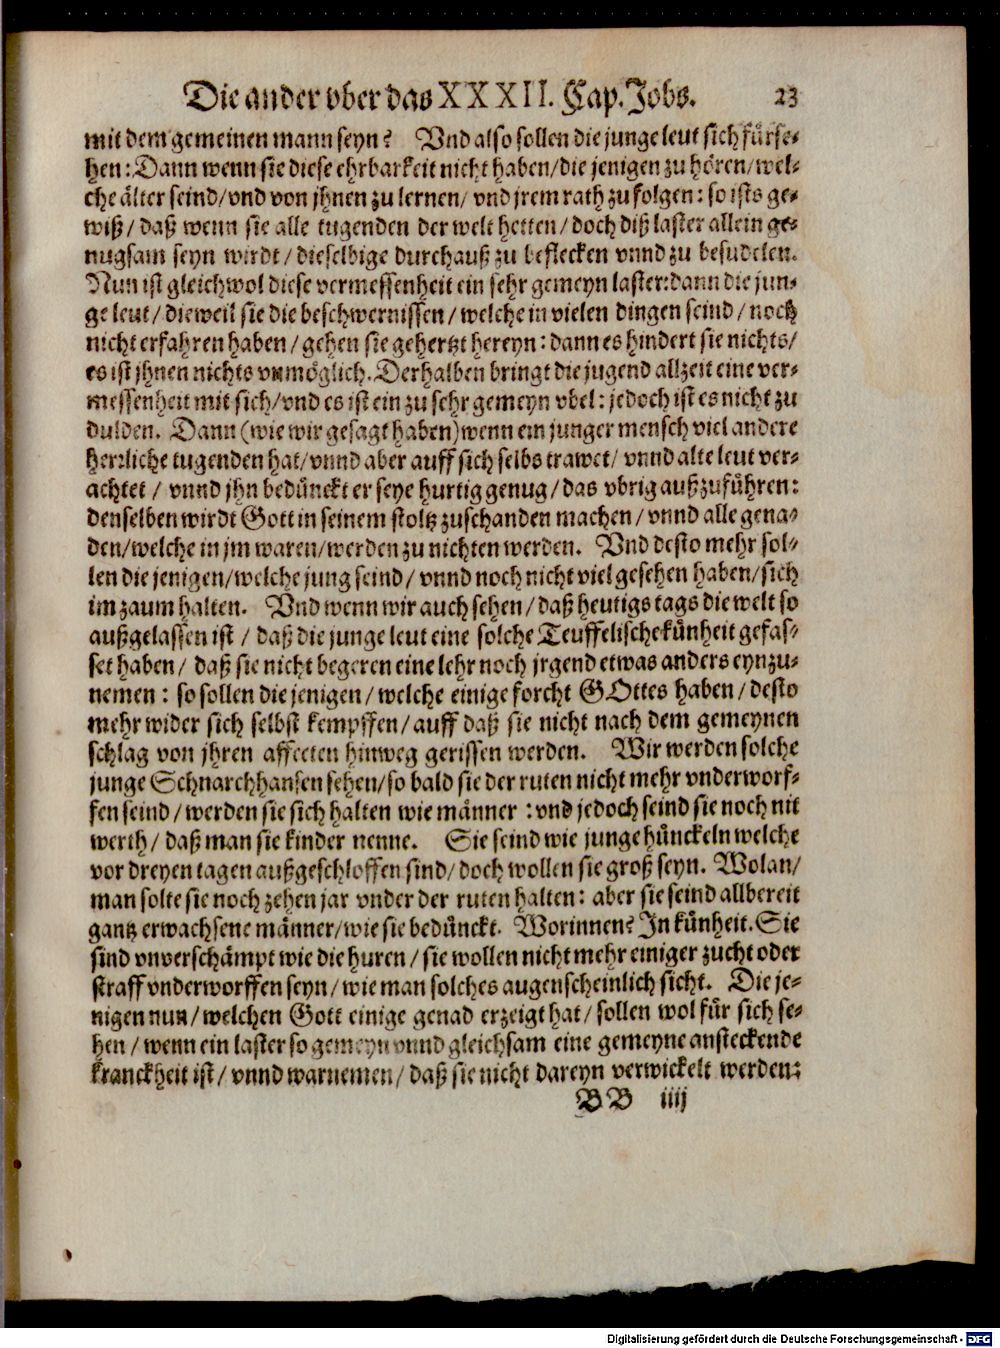 Die ander vber das XXXII. Cap. Jobs. 23
mit dem gemeinen mann seyn? Vnd also sollen die junge leut sich fürse-
hen: Dann wenn sie diese ehrbarkeit nicht haben/die jenigen zu hören/wel-
che älter seind/vnd von jhnen zu lernen/ vnd jrem rath zu folgen: so ists ge-
wiß/ daß wenn sie alle tugenden der welt hetten/ doch diß laster allein ge-
nugsam seyn wirdt/ dieselbige durchauß zu beflecken vnnd zu besudelen.
Nun ist gleichwol diese vermessenheit ein sehr gemeyn laster: dann die jun-
ge leut/ dieweil sie die beschwernissen/ welche in vielen dingen seind/ noch
nicht erfahren haben/ gehen sie gehertzt hereyn: dann es hindert sie nichts/
es ist jhnen nichts vnmöglich. Derhalben bringt die jugend allzeit eine ver-
messenheit mit sich/vnd es ist ein zu sehr gemeyn vbel: jedoch ist es nicht zu
dulden. Dann (wie wir gesagt haben) wenn ein junger mensch viel andere
herrliche tugenden hat/ vnnd aber auff sich selbs trawet/ vnnd alte leut ver-
achtet/ vnnd jhn bedünckt er seye hurtig genug/ das vbrig außzuführen:
denselben wirdt Gott in seinem stoltz zuschanden machen/ vnnd alle gena-
den/welche in jm waren/werden zu nichten werden. Vnd desto mehr sol-
len die jenigen/welche jung seind/ vnnd noch nicht viel gesehen haben/sich
im zaum halten. Vnd wenn wir auch sehen/ daß heutigs tags die welt so
außgelassen ist/ daß die junge leut eine solche Teuffelische künheit gefas-
set haben/ daß sie nicht begeren eine lehr noch jrgend etwas anders eynzu-
nemen: so sollen die jenigen/ welche einige forcht GOttes haben/ desto
mehr wider sich selbst kempffen/ auff daß sie nicht nach dem gemeynen
schlag von jhren affecten hinweg gerissen werden. Wir werden solche
junge Schnarchhansen sehen/so bald sie der ruten nicht mehr vnderworf-
fen seind/ werden sie sich halten wie männer: vnd jedoch seind sie noch nit
werth/ daß man sie kinder nenne. Sie seind wie junge hünckeln welche
vor dreyen tagen außgeschloffen sind/ doch wollen sie groß seyn. Wolan/
man solte sie noch zehen jar vnder der ruten halten: aber sie seind allbereit
gantz erwachsene männer/wie sie bedünckt. Worinnen? In künheit. Sie
sind vnverschämpt wie die huren/ sie wollen nicht mehr einiger zucht oder
straff vnderworffen seyn/ wie man solches augenscheinlich sicht. Die je-
nigen nun/ welchen Gott einige genad erzeigt hat/ sollen wol für sich se-
hen/ wenn ein laster so gemeyn vnnd gleichsam eine gemeyne ansteckende
kranckheit ist/ vnnd warnemen/ daß sie nicht dareyn verwickelt werden:
BB iiij
Digitalisierung gefördert durch die Deutsche Forschungsgemeinschaft - DFG